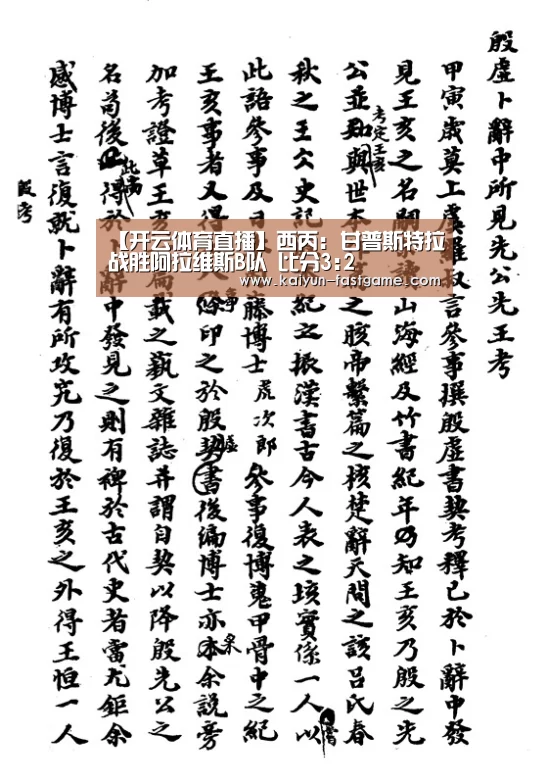 殷虛卜辭中所見先公先王考
甲寅歲莫上虞羅叔言參事撰殷虛書契考釋已於卜辭中發
見王亥之名嗣讀山海經及竹書紀年乃知王亥乃殷之先
考定王亥
公並與世本之胲帝繫篇之核楚辭天問之該呂氏春
秋之王冰史記紀之振漢書古今人表之垓實係一人以
此語參事及日藤博士虎次郎參事復博蒐甲骨中之紀
王亥事者又得條印之於殷虛書後編博士亦采余説旁
加考證草王亥篇載之藝文雜誌并謂自契以降殷先公之
此篇
名苟後得於卜辭中發見之則有裨於古代史者當尤鉅余
感博士言復就卜辭有所攻究乃復於王亥之外得王恒一人
殷考
【开云体育直播】西丙：甘普斯特拉
战胜阿拉维斯B队 比分3:2
www.kaiyun-fastgame.com